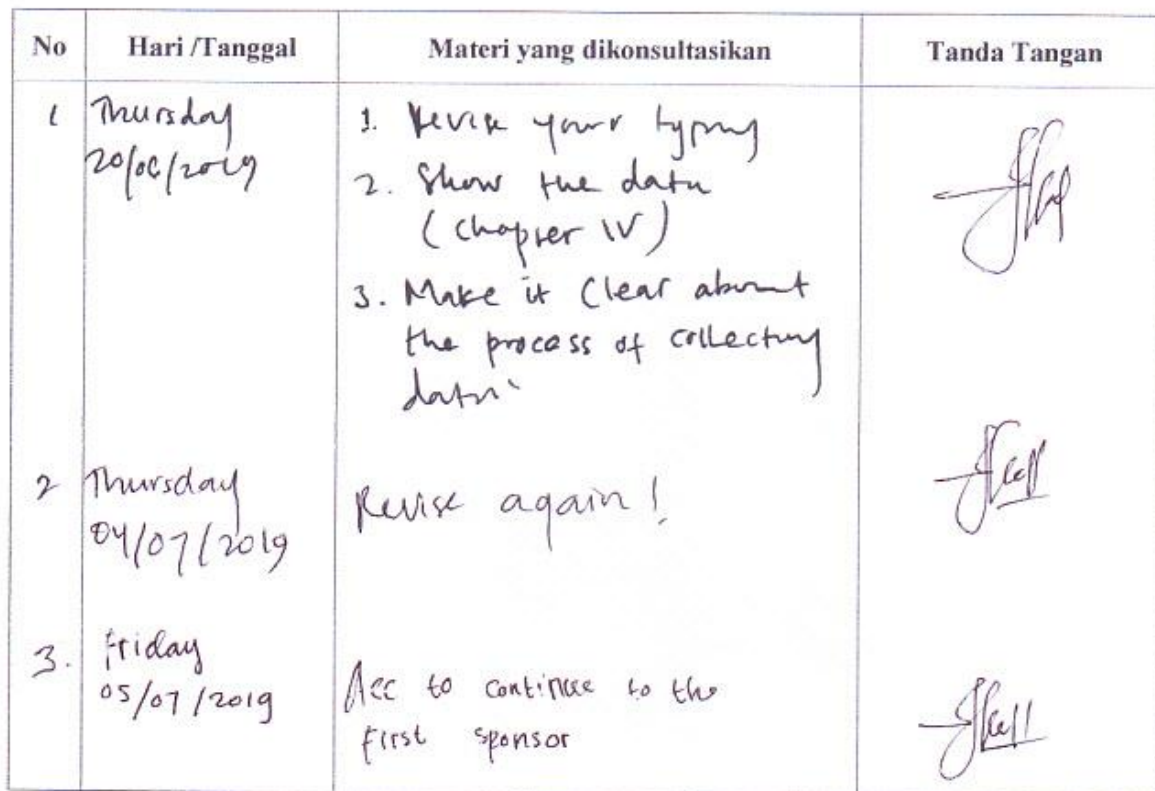 No Hari /Tanggal Materi yang dikonsultasikan Tanda Tangan
1 Thursday 1. Revise your typing
20/06/2019 2. Show the data
(Chapter IV)
3. Make it Clear about
the process of collecting
data
2 Thursday Revise again!
04/07/2019
3. Friday
05/07/2019 Acc to continue to the
first sponsor